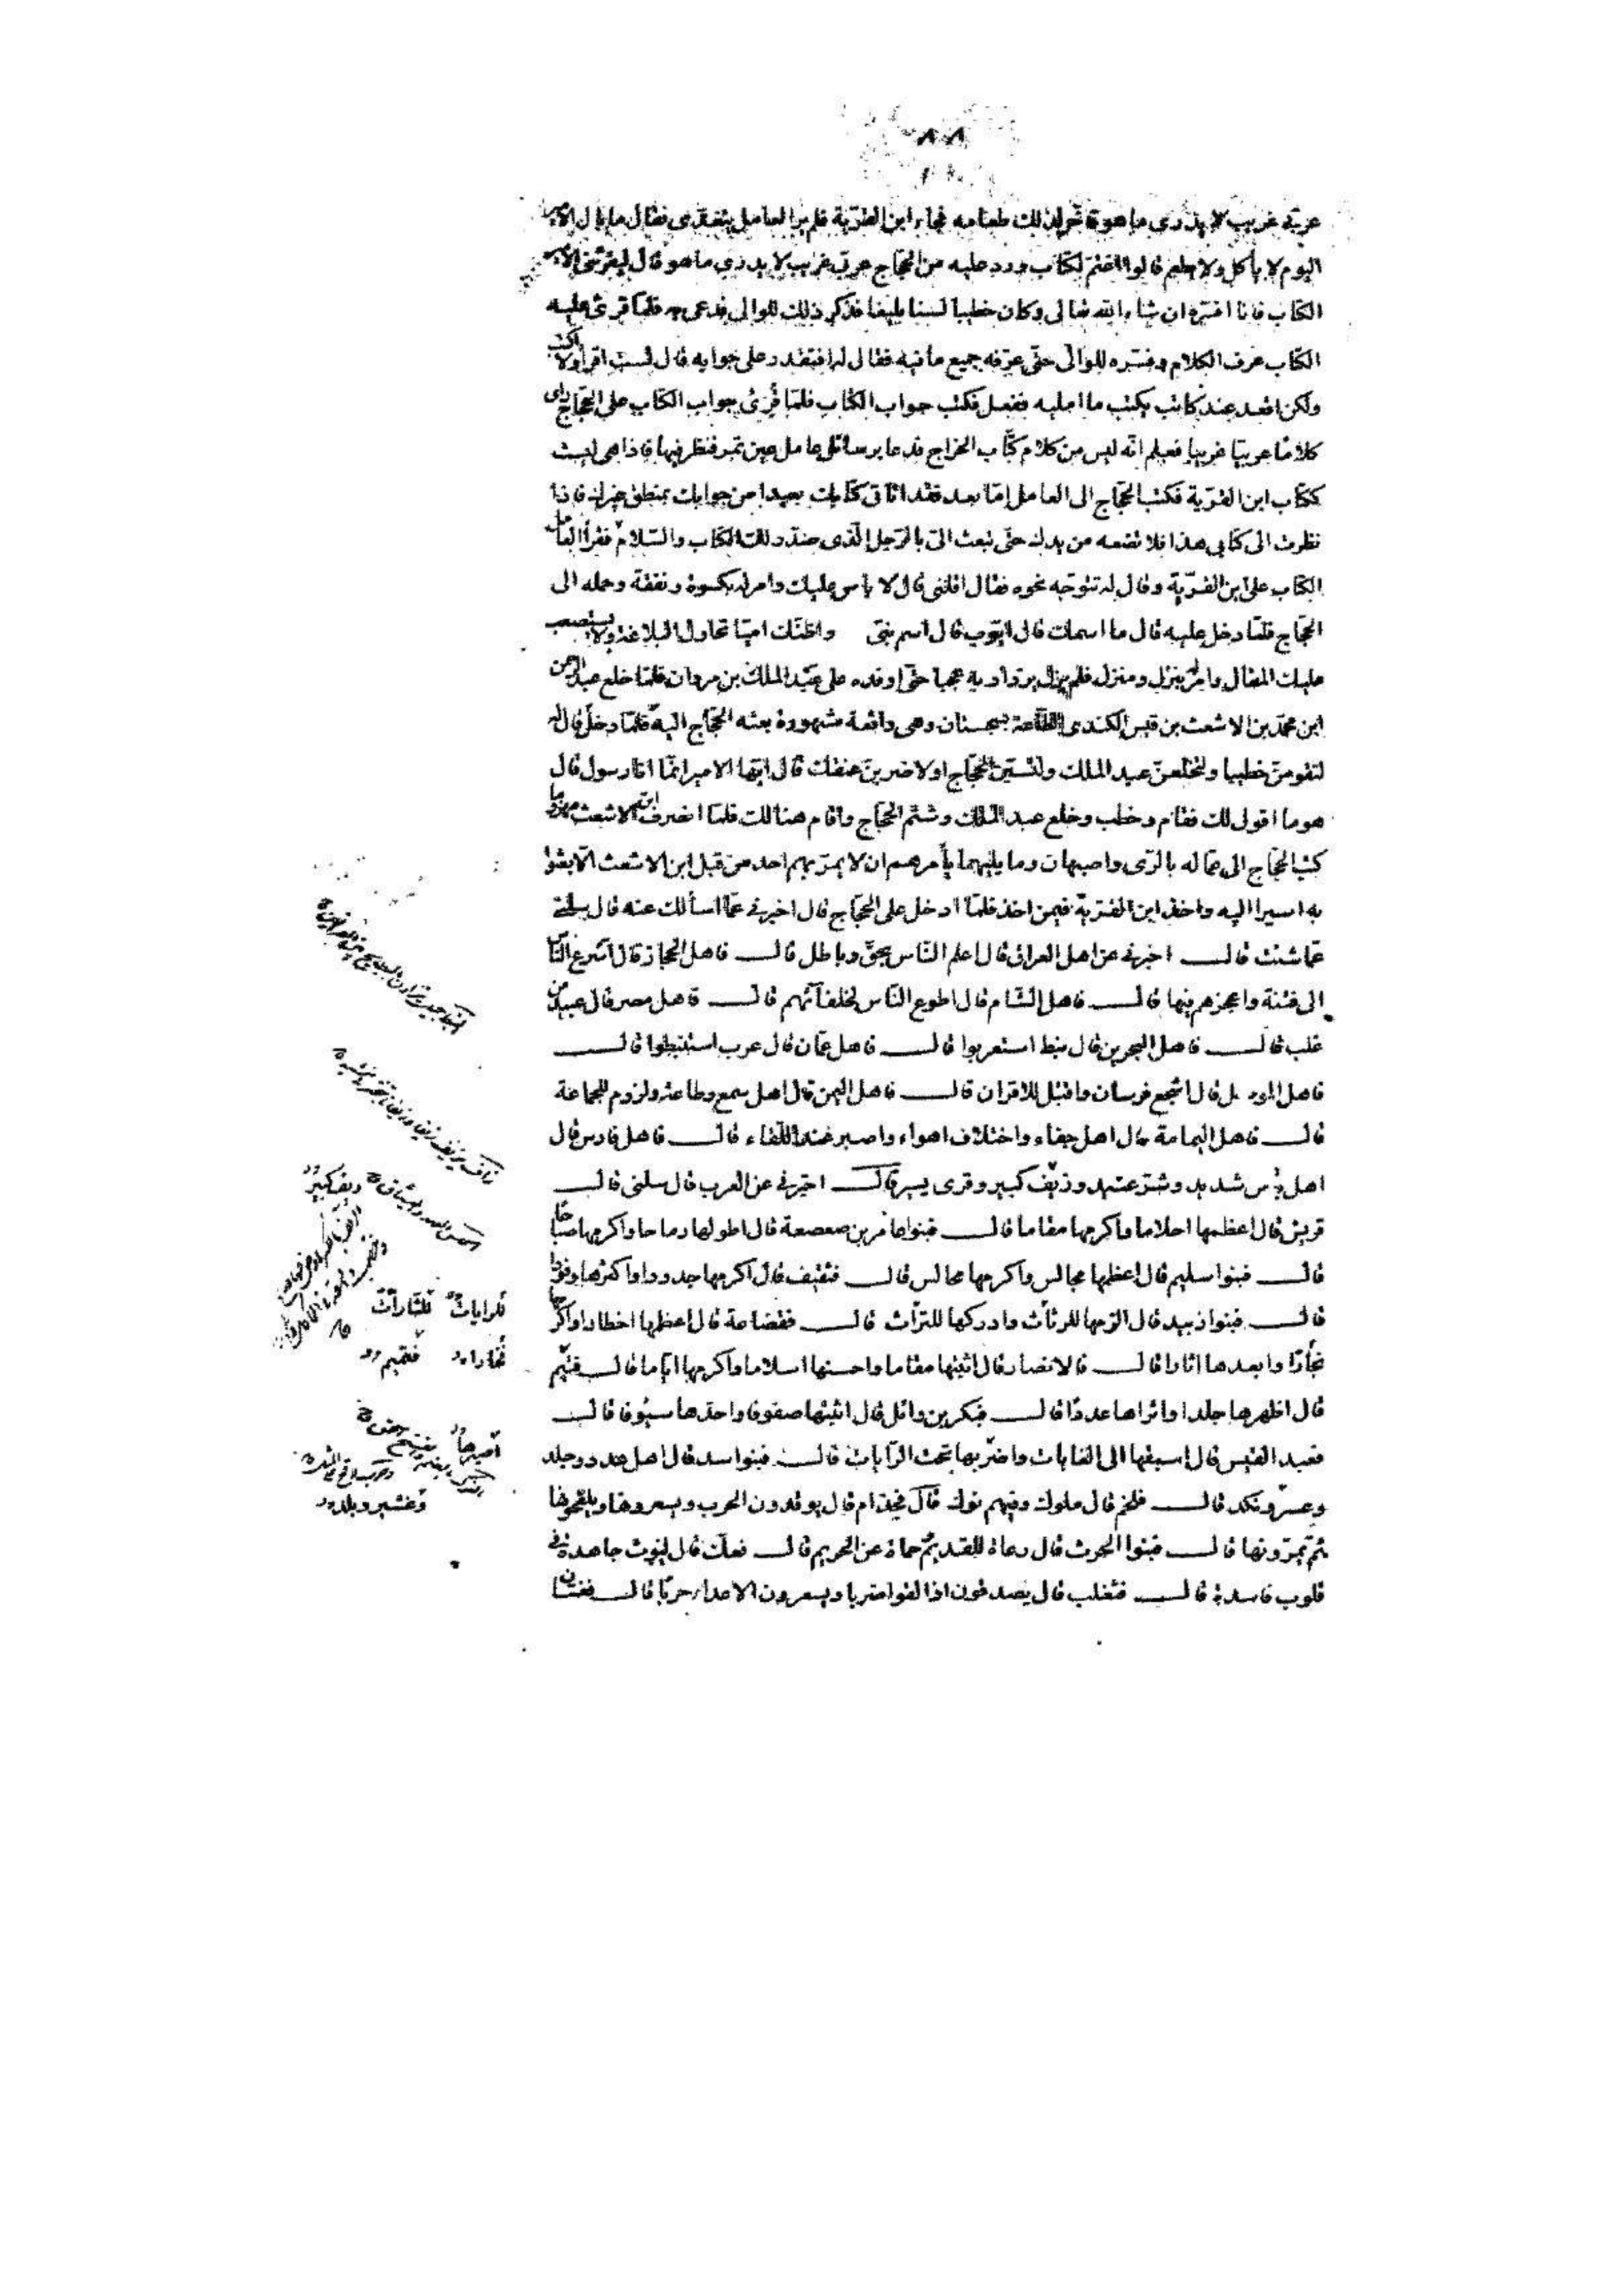 ٨٨
عربي غريب لا يدري ما هو فاخر لذلك طعامه فجاء ابن القرية فلم ير العامل يتغدى فقال ما بال الامير
اليوم لا يأكل ولا يطعم قالوا اغتم لكتاب ورد عليه من الحجاج عربي غريب لا يدري ما هو قال ليقرئني الامير
الكتاب فانا افسره ان شاء الله تعالى وكان خطيبا لسنا بليغا فذكر ذلك للوالي فدعى به فلما قرئ عليه
الكتاب عرف الكلام وفسره للوالي حتى عرفه جميع ما فيه فقال له افتقدر على جوابه قال لست اقرأ ولا اكتب
ولكن اقعد عند كاتب يكتب ما امليه ففعل فكتب جواب الكتاب فلما قرئ جواب الكتاب على الحجاج رأى
كلاما عربيا غريبا فعلم انه ليس من كلام كتاب الخراج فدعا برسائل عامل عين تمر فنظر فيها فاذا هي ليست
ككتاب ابن القرية فكتب الحجاج الى العامل اما بعد فقد اتاني كتابك بعيدا من جوابك بمنطق غيرك فاذا
نظرت الى كتابي هذا فلا تضعه من يدك حتى تبعث الي بالرجل الذي صدر لك الكتاب والسلام فقرأ العامل
الكتاب على ابن القرية وقال له تتوجه نحوه فقال اقلني قال لا بأس عليك وامر له بكسوة ونفقة وحمله الى
الحجاج فلما دخل عليه قال ما اسمك قال ايوب قال اسم نبي واظنك اميا تحاول البلاغة ولا يستصعب
عليك المقال وامر له بنزل ومنزل فلم يزل يزداد به عجبا حتى اوفده على عبد الملك بن مروان فلما خلع عبد الرحمن
ابن محمد بن الاشعث بن قيس الكندي الطاعة بسجستان وهي واقعة مشهورة بعثه الحجاج اليه فلما دخل قال له
لتقومن خطيبا ولتخلعن عبد الملك ولتسبن الحجاج او لاضربن عنقك قال ايها الامير انما انا رسول قال
هو ما اقول لك فقام وخطب وخلع عبد الملك وشتم الحجاج واقام هنالك فلما انصرف ابن الاشعث مهزوما
كتب الحجاج الى عماله بالري واصبهان وما يليهما يأمرهم ان لا يمر بهم احد من قبل ابن الاشعث الا بعثوا
به اسيرا اليه واخذ ابن القرية فيمن اخذ فلما ادخل على الحجاج قال اخبرني عما اسألك عنه قال سلني
عما شئت قال اخبرني عن اهل العراق قال اعلم الناس بحق وباطل قال فاهل الحجاز قال اسرع الناس
الى فتنة واعجزهم فيها قال فاهل الشام قال اطوع الناس لخلفائهم قال فاهل مصر قال عبيد من
غلب قال فاهل البحرين قال نبط استعربوا قال فاهل عمان قال عرب استنبطوا قال
فاهل الموصل قال اشجع فرسان واقتل للاقران قال فاهل اليمن قال اهل سمع وطاعة ولزوم للجماعة
قال فاهل اليمامة قال اهل جفاء واختلاف اهواء واصبر عند اللقاء قال فاهل فارس قال
اهل بأس شديد وشر عتيد وزيف كبير وقرى يسير قال اخبرني عن العرب قال سلني قال
قريش قال اعظمها احلاما واكرمها مقاما قال فبنوا عامر بن صعصعة قال اطولها رماحا واكرمها صباحا
قال فبنوا سليم قال اعظمها مجالس واكرمها محابس قال فثقيف قال اكرمها جدودا واكثرها وفودا
قال فبنوا زبيد قال الزمها للرايات وادركها للترات قال فقضاعة قال اعظمها اخطارا واكرمها
نجارا وابعدها اثارا قال فالانصار قال اثبتها مقاما واحسنها اسلاما واكرمها اياما قال فتميم
قال اظهرها جلدا واثراها عددا قال فبكر بن وائل قال اثبتها صفوفا واحدها سيوفا قال
فعبد القيس قال اسبقها الى الغايات واضربها تحت الرايات قال فبنوا اسد قال اهل عدد وجلد
وعسر ونكد قال فلخم قال ملوك وفيهم نوك قال فجذام قال يوقدون الحرب ويسعرونها ويلقحونها
ثم يمرونها قال فبنوا الحرث قال رعاة للقديم حماة عن الحريم قال فعك قال ليوث جاهدة في
قلوب فاسدة قال فتغلب قال يصدقون اذا لقوا ضربا ويسعرون الاعداء حربا قال فغسان
وريف كبير
للرايات للثارات
نجارا فتميم